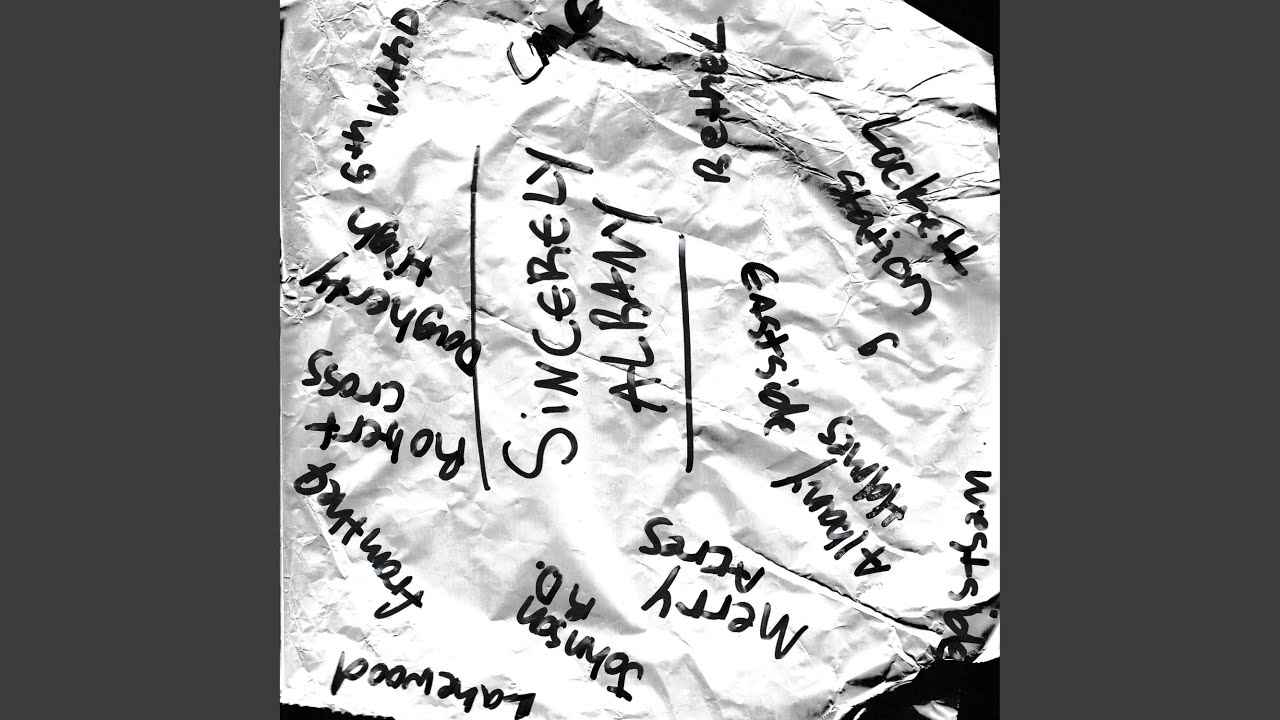 6th WARD
CME
Bethel
Lockett
Station
9
SINCERELY
ALBANY
Dougherty
High
Eastside
Robert
Cross
Albany
Homes
Westside
Merry
Acres
Johnson
RD.
Lakewood